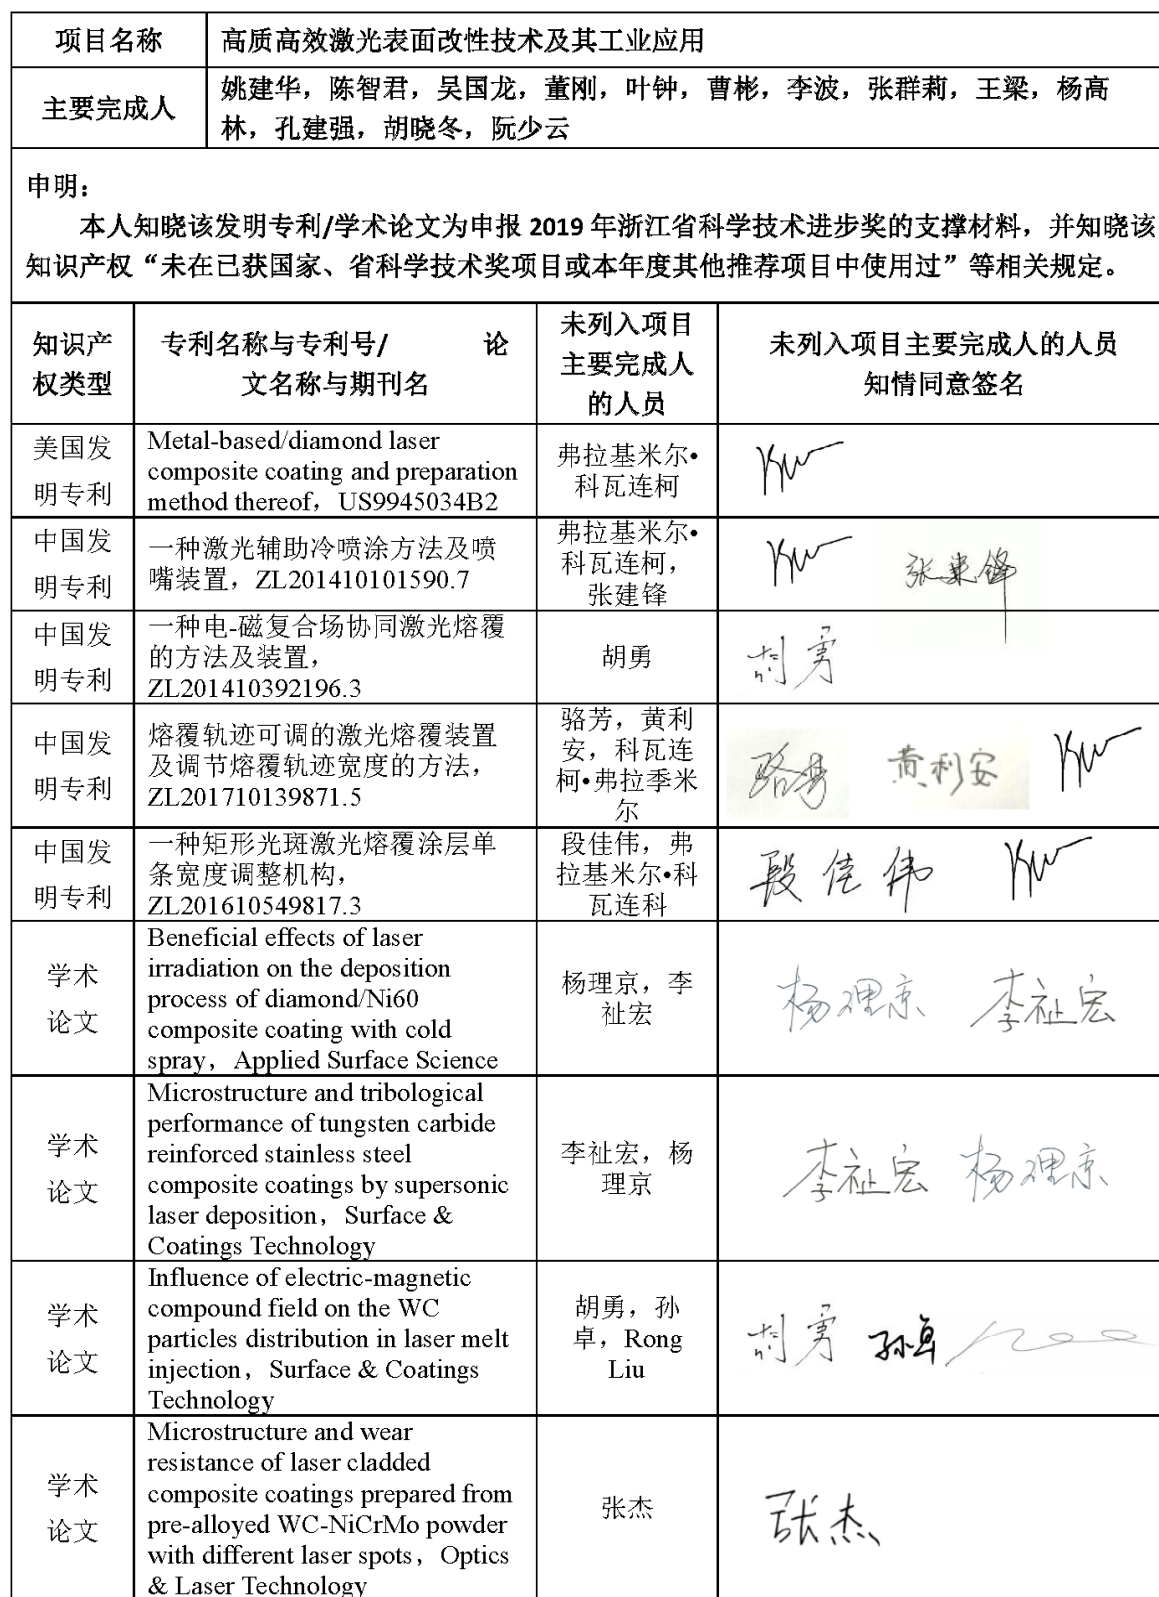 项目名称
高质高效激光表面改性技术及其工业应用
主要完成人
姚建华，陈智君，吴国龙，董刚，叶钟，曹彬，李波，张群莉，王梁，杨高
林，孔建强，胡晓冬，阮少云
申明：
本人知晓该发明专利/学术论文为申报 2019 年浙江省科学技术进步奖的支撑材料，并知晓该
知识产权“未在已获国家、省科学技术奖项目或本年度其他推荐项目中使用过”等相关规定。
知识产
权类型
专利名称与专利号/ 论
文名称与期刊名
未列入项目
主要完成人
的人员
未列入项目主要完成人的人员
知情同意签名
美国发
明专利
Metal-based/diamond laser
composite coating and preparation
method thereof，US9945034B2
弗拉基米尔•
科瓦连柯
中国发
明专利
一种激光辅助冷喷涂方法及喷
嘴装置，ZL201410101590.7
弗拉基米尔•
科瓦连柯，
张建锋
张建锋
中国发
明专利
一种电-磁复合场协同激光熔覆
的方法及装置，
ZL201410392196.3
胡勇
胡勇
中国发
明专利
熔覆轨迹可调的激光熔覆装置
及调节熔覆轨迹宽度的方法，
ZL201710139871.5
骆芳，黄利
安，科瓦连
柯•弗拉季米
尔
骆芳 黄利安
中国发
明专利
一种矩形光斑激光熔覆涂层单
条宽度调整机构，
ZL201610549817.3
段佳伟，弗
拉基米尔•科
瓦连科
段佳伟
学术
论文
Beneficial effects of laser
irradiation on the deposition
process of diamond/Ni60
composite coating with cold
spray，Applied Surface Science
杨理京，李
祉宏
杨理京 李祉宏
学术
论文
Microstructure and tribological
performance of tungsten carbide
reinforced stainless steel
composite coatings by supersonic
laser deposition，Surface &
Coatings Technology
李祉宏，杨
理京
李祉宏 杨理京
学术
论文
Influence of electric-magnetic
compound field on the WC
particles distribution in laser melt
injection，Surface & Coatings
Technology
胡勇，孙
卓，Rong
Liu
胡勇 孙卓
学术
论文
Microstructure and wear
resistance of laser cladded
composite coatings prepared from
pre-alloyed WC-NiCrMo powder
with different laser spots，Optics
& Laser Technology
张杰
张杰